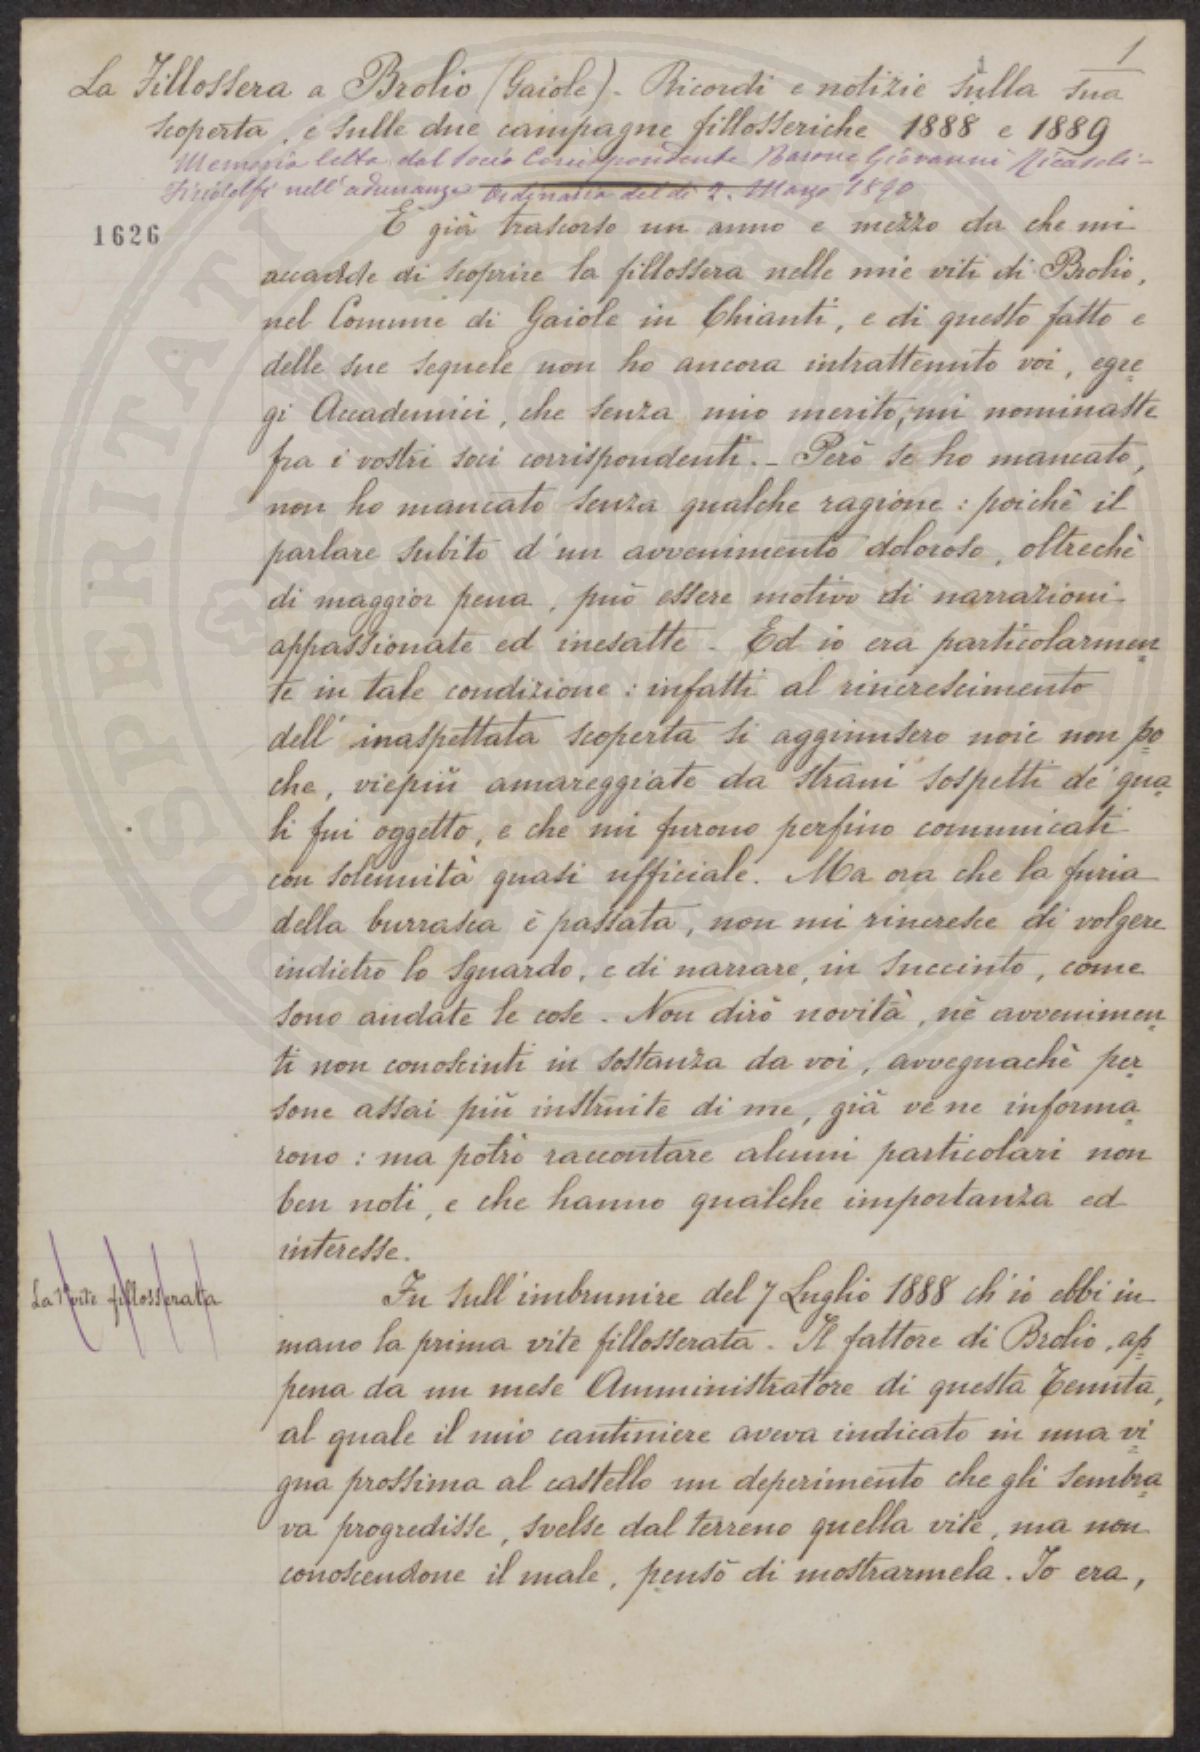 1
La Fillossera a Brolio (Gaiole). Ricordi e notizie sulla sua
scoperta, e sulle due campagne fillosseriche 1888 e 1889
Memoria letta dal Socio Corrispondente Barone Giovanni Ricasoli-
Firidolfi nell'adunanza Ordinaria del dì 2. Marzo 1890
1626
È già trascorso un anno e mezzo da che mi
accadde di scoprire la fillossera nelle mie viti di Brolio,
nel Comune di Gaiole in Chianti, e di questo fatto e
delle sue sequele non ho ancora intrattenuto voi, egre
gi Accademici, che senza mio merito, mi nominaste
fra i vostri soci corrispondenti. - Però se ho mancato,
non ho mancato senza qualche ragione: poichè il
parlare subito d'un avvenimento doloroso, oltrechè
di maggior pena, può essere motivo di narrazioni
appassionate ed inesatte. Ed io era particolarmen
te in tale condizione: infatti al rincrescimento
dell'inaspettata scoperta si aggiunsero noie non po
che, viepiù amareggiate da strani sospetti de' qua
li fui oggetto, e che mi furono perfino comunicati
con solennità quasi ufficiale. Ma ora che la furia
della burrasca è passata, non mi rincresce di volgere
indietro lo sguardo, e di narrare, in succinto, come
sono andate le cose. Non dirò novità, nè avvenimen
ti non conosciuti in sostanza da voi, avvegnachè per
sone assai più instruite di me, già ve ne informa
rono: ma potrò raccontare alcuni particolari non
ben noti, e che hanno qualche importanza ed
interesse.
La 1ª vite fillosserata
Fu sull'imbrunire del 7 Luglio 1888 ch'io ebbi in
mano la prima vite fillosserata. Il fattore di Brolio, ap
pena da un mese Amministratore di questa Tenuta,
al quale il mio cantiniere aveva indicato in una vi
gna prossima al castello un deperimento che gli sembra
va progredisse, svelse dal terreno quella vite, ma non
conoscendone il male, pensò di mostrarmela. Io era,